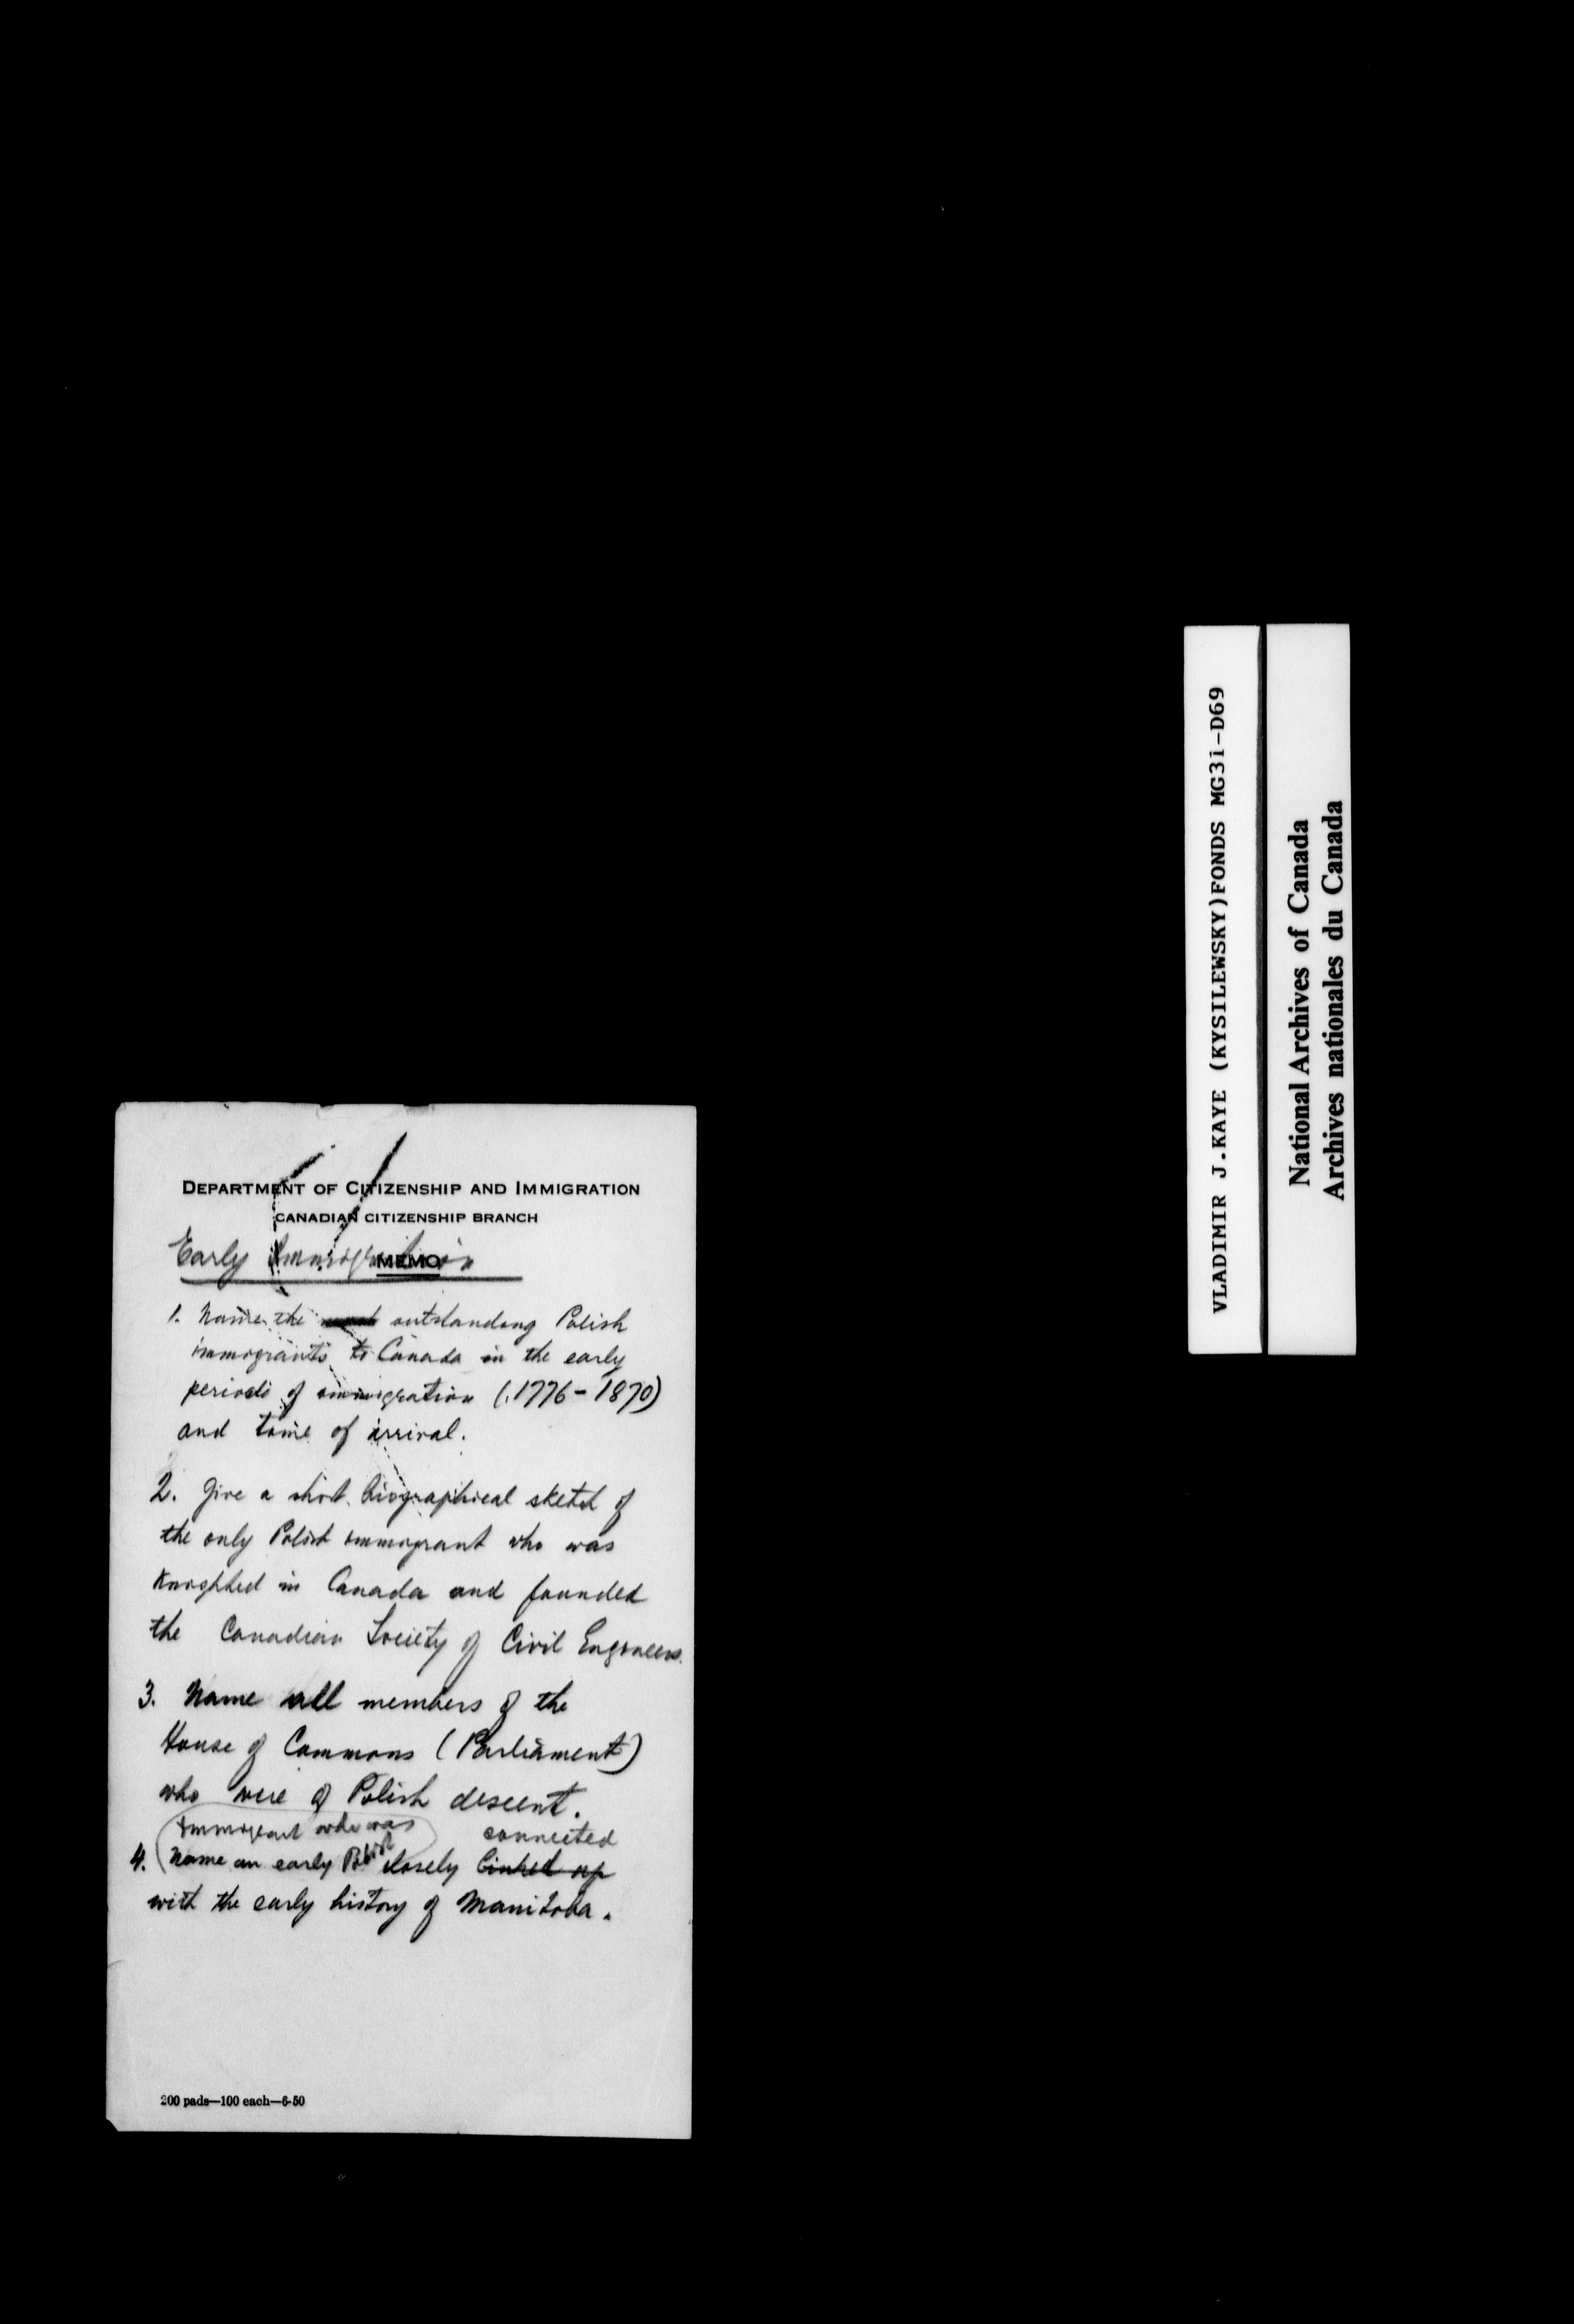 DEPARTMENT OF CITIZENSHIP AND IMMIGRATION
CANADIAN CITIZENSHIP BRANCH
MEMO
Early Immigration
1. Name the outstanding Polish
immigrants to Canada in the early
periods of immigration (1776-1870)
and time of arrival.
2. Give a short biographical sketch of
the only Polish immigrant who was
Knighted in Canada and founded
the Canadian Society of Civil Engineers.
3. Name all members of the
House of Commons (Parliament)
who were of Polish descent.
immigrant who was connected
4. Name an early Polish closely linked up
with the early history of Manitoba.
200 pads—100 each—6-50
VLADIMIR J.KAYE (KYSILEWSKY)FONDS MG31-D69
National Archives of Canada
Archives nationales du Canada